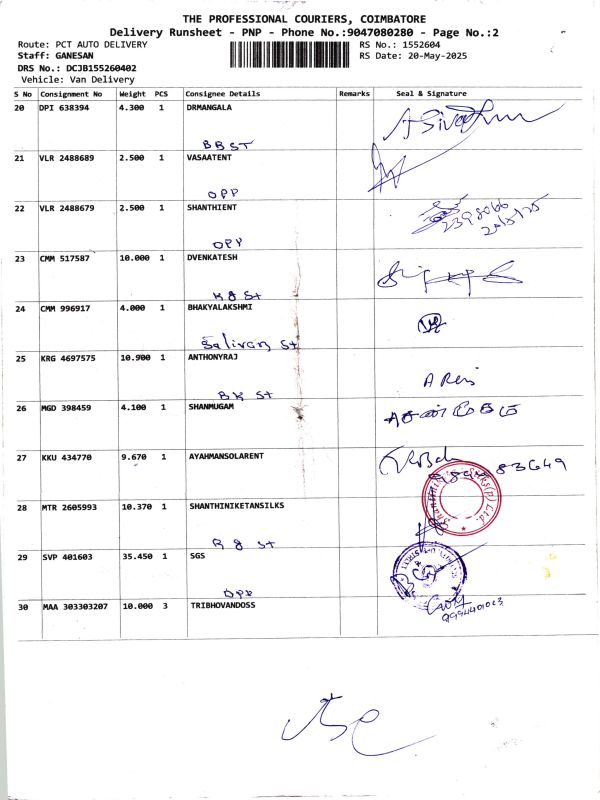 THE PROFESSIONAL COURIERS, COIMBATORE
Delivery Runsheet - PNP - Phone No.:9047080280 - Page No.:2
Route: PCT AUTO DELIVERY
RS No.: 1552604
Staff: GANESAN
RS Date: 20-May-2025
DRS No.: DCJB155260402
Vehicle: Van Delivery
S No Consignment No Weight PCS Consignee Details Remarks Seal & Signature
20 DPI 638394 4.300 1 DRMANGALA
BBST
21 VLR 2488689 2.500 1 VASAATENT
OPP
22 VLR 2488679 2.500 1 SHANTHIENT
2398066
OPP
23 CMM 517587 10.000 1 DVENKATESH
K8 St
24 CMM 996917 4.000 1 BHAKYALAKSHMI
Salivan St
25 KRG 4697575 10.900 1 ANTHONYRAJ
BK St
26 MGD 398459 4.100 1 SHANMUGAM
27 KKU 434770 9.670 1 AYAHMANSOLARENT
28 MTR 2605993 10.370 1 SHANTHINIKETANSILKS
R8 St
29 SVP 401603 35.450 1 SGS
OPP
30 MAA 303303207 10.000 3 TRIBHOVANDOSS